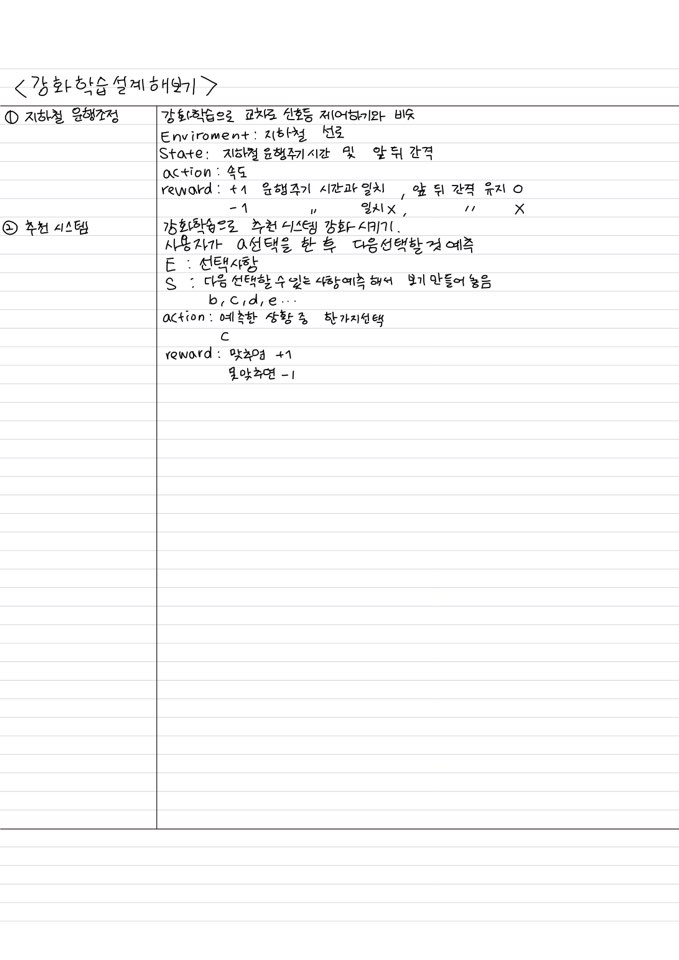 <강화학습설계해보기>
① 지하철 운행조정
강화학습으로 교차로 신호등 제어하기와 비슷
Enviroment : 지하철 선로
State : 지하철 운행주기 시간 및 앞 뒤 간격
action : 속도
reward : +1 운행주기 시간과 일치, 앞 뒤 간격 유지 O
-1 〃 일치 X, 〃 X
② 추천 시스템
강화학습으로 추천 시스템 강화 시키기.
사용자가 a선택을 한 후 다음선택할 것 예측
E : 선택사항
S : 다음 선택할 수 있는 사항예측 해서 보기 만들어 놓음
b, c, d, e ...
action : 예측한 상황 중 한가지선택
C
reward : 맞추면 +1
못맞추면 -1